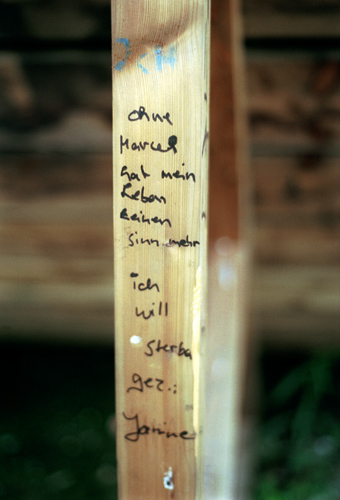 ICH
ohne
Marcel
hat mein
Leben
keinen
sinn mehr
ich
will
sterben
gez.:
Janine